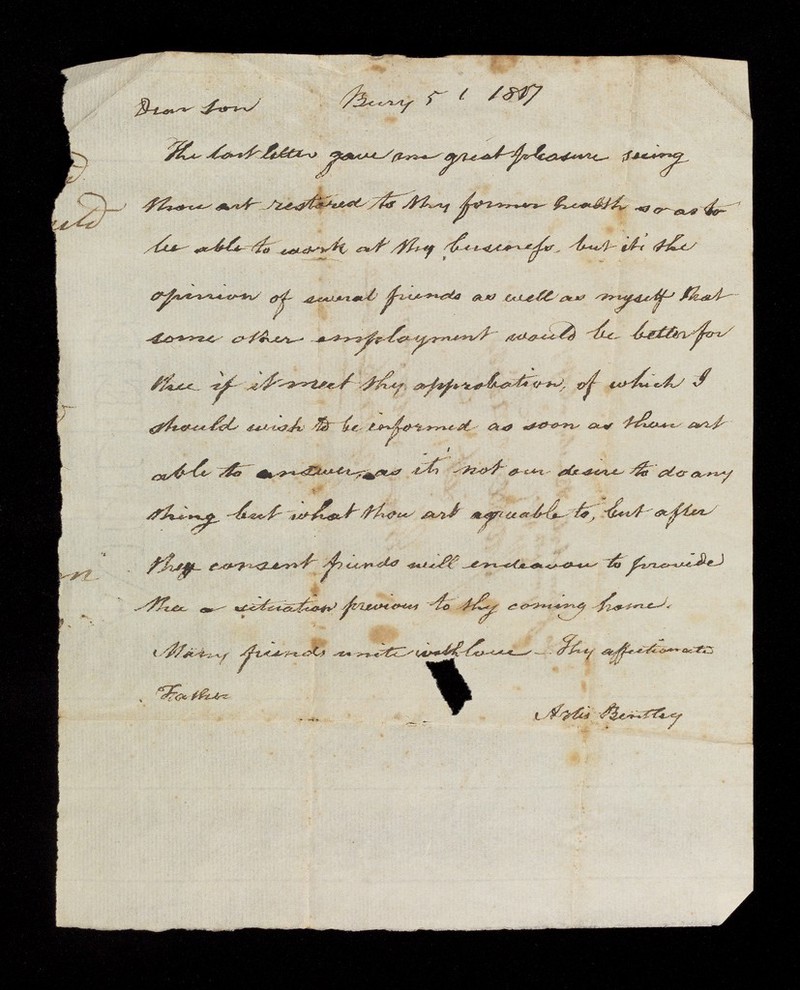 Dear Son Bury 5 1 1817
The last letter gave me great pleasure seeing
thou art restored to thy former health so as to
be able to work at thy business, but it's the
opinion of several friends as well as myself that
some other employment would be better for
thee if it meet thy approbation, of which I
should wish to be informed as soon as thou art
able to answer, as it's not our desire to do any
thing but what thou art agreable to, but after
they consent friends will endeavou to provide
thee a situation previous to thy coming home.
Many friends unite with love Thy affectionate
Father
Bentley